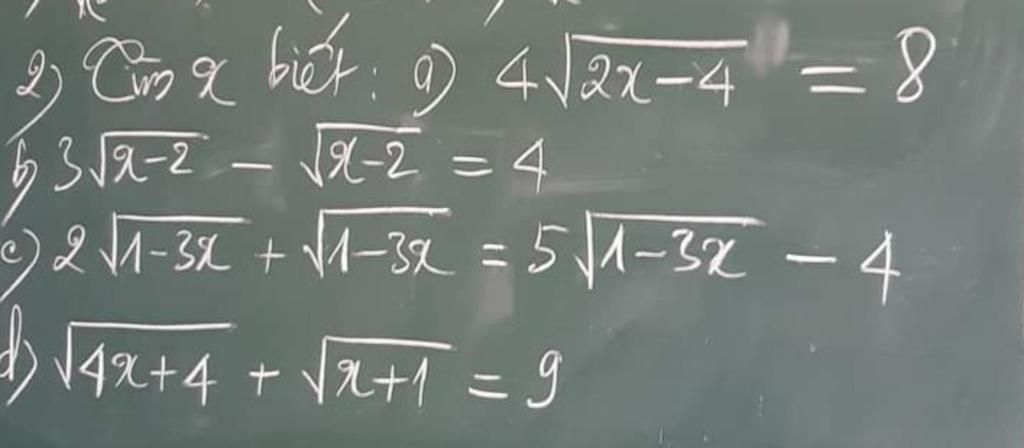 2) Tìm x biết: a) 4√(2x-4) = 8
b) 3√(x-2) - √(x-2) = 4
c) 2√(1-3x) + √(1-3x) = 5√(1-3x) - 4
d) √(4x+4) + √(x+1) = 9